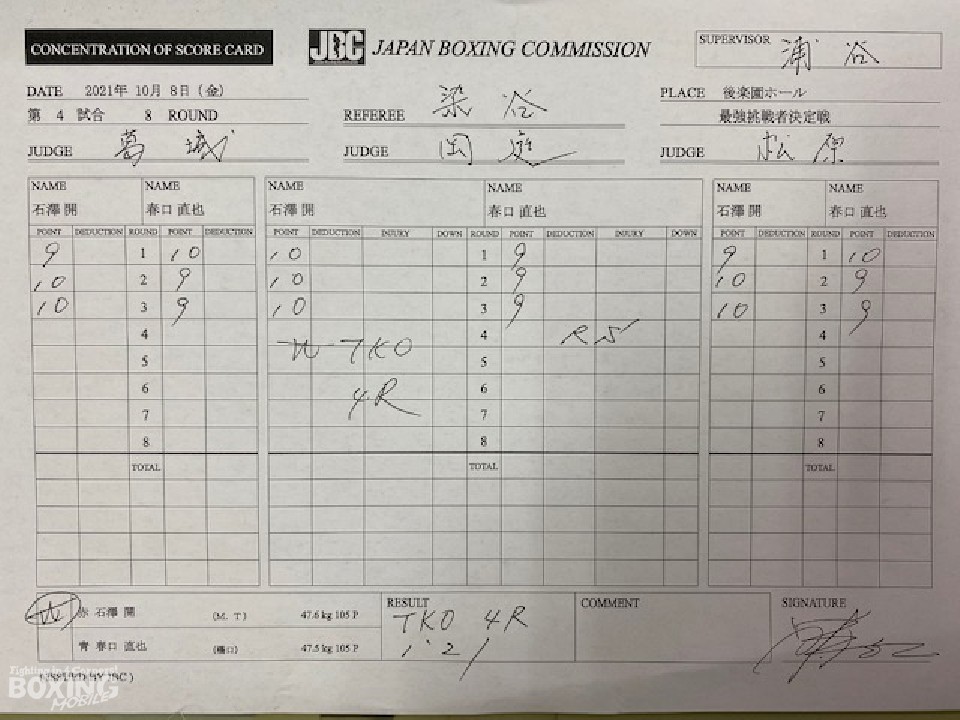 CONCENTRATION OF SCORE CARD
JBC JAPAN BOXING COMMISSION
SUPERVISOR 浦谷
DATE 2021年 10月 8日 (金)
第 4 試合 8 ROUND
REFEREE 染谷
PLACE 後楽園ホール
最強挑戦者決定戦
JUDGE 葛城 JUDGE 岡庭 JUDGE 松原
NAME NAME NAME NAME NAME NAME
石澤 開 春口 直也 石澤 開 春口 直也 石澤 開 春口 直也
POINT DEDUCTION ROUND POINT DEDUCTION POINT DEDUCTION INJURY DOWN ROUND POINT DEDUCTION INJURY DOWN POINT DEDUCTION ROUND POINT DEDUCTION
9 1 10 10 1 9 9 1 10
10 2 9 10 2 9 10 2 9
10 3 9 10 3 9 10 3 9
4 4 RS 4
5 W TKO 5 5
6 4R 6 6
7 7 7
8 8 8
TOTAL TOTAL TOTAL
W 赤 石澤 開 (M. T) 47.6 kg 105 P
青 春口 直也 (樋口) 47.5 kg 105 P
RESULT
TKO 4R
1'21
COMMENT
SIGNATURE
(ISSUED BY JBC)
Fighting in 4 Corners!
BOXING
MOBILE